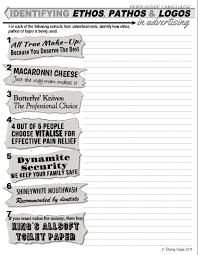 PERSUASIVE LANGUAGE
IDENTIFYING ETHOS, PATHOS & LOGOS
in advertising
For each of the following extracts from advertisements, identify how ethos,
pathos or logos is being used.
1
All True Make-Up:
Because You Deserve The Best
2
MACARONNI CHEESE
Just the way mom makes it
3
Butterlys' Knives:
The Professional Choice
4
4 OUT OF 5 PEOPLE
CHOOSE VITALISE FOR
EFFECTIVE PAIN RELIEF
5
Dynamite
Security
WE KEEP YOUR FAMILY SAFE
6
SHINEYWHITE MOUTHWASH
Recommended by dentists
7
If you want value for money, then buy
KING'S ALLSOFT
TOILET PAPER